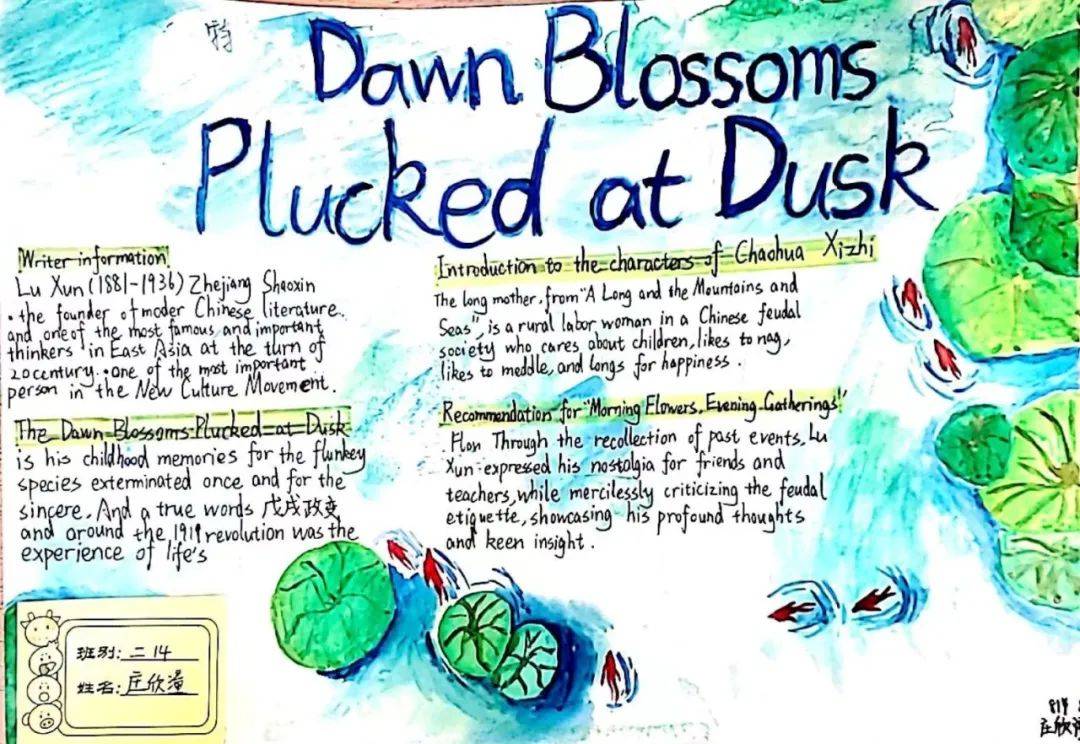 特
Dawn Blossoms
Plucked at Dusk
Writer information
Lu Xun (1881-1936) Zhejiang Shaoxin
• the founder of moder Chinese literature.
and one of the most famous and important
thinkers in East Asia at the turn of
20century. • one of the most important
person in the New Culture Movement.
The Dawn Blossoms Plucked at Dusk
is his childhood memories for the flunkey
species exterminated once and for the
sincere. And a true words 戊戌政变
and around the 1911 revolution was the
experience of life's
Introduction to the characters of Chaohua Xizhi
The long mother, from "A Long and the Mountains and
Seas", is a rural labor woman in a Chinese feudal
society who cares about children, likes to nag,
likes to meddle, and longs for happiness.
Recommendation for "Morning Flowers, Evening Gatherings"
Hon Through the recollection of past events, Lu
Xun expressed his nostalgia for friends and
teachers, while mercilessly criticizing the feudal
etiquette, showcasing his profound thoughts
and keen insight.
班别: 二14
姓名: 庄欣潼
庄欣潼